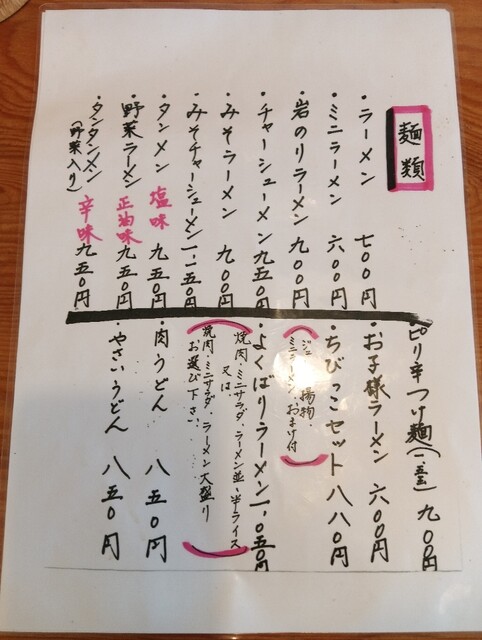 麺類
・ラーメン 七〇〇円
・ミニラーメン 六〇〇円
・岩のりラーメン 九〇〇円
・チャーシューメン 九五〇円
・みそラーメン 九〇〇円
・みそチャーシューメン 一、一五〇円
・タンメン 塩味 九五〇円
・野菜ラーメン 正油味 九五〇円
・タンタンメン 辛味 九五〇円
(野菜入り)
ピリ辛つけ麺 九〇〇円
・お子様ラーメン 六〇〇円
・ちびっこセット 八八〇円
揚物・
ミニラーメン、おまけ付
・よくばりラーメン 一、〇五〇円
焼肉・ミニサラダ、ラーメン並・半ライス
又は、
焼肉・ミニサラダ、ラーメン大盛り
お選び下さい。
・肉うどん 八五〇円
・やさいうどん 八五〇円